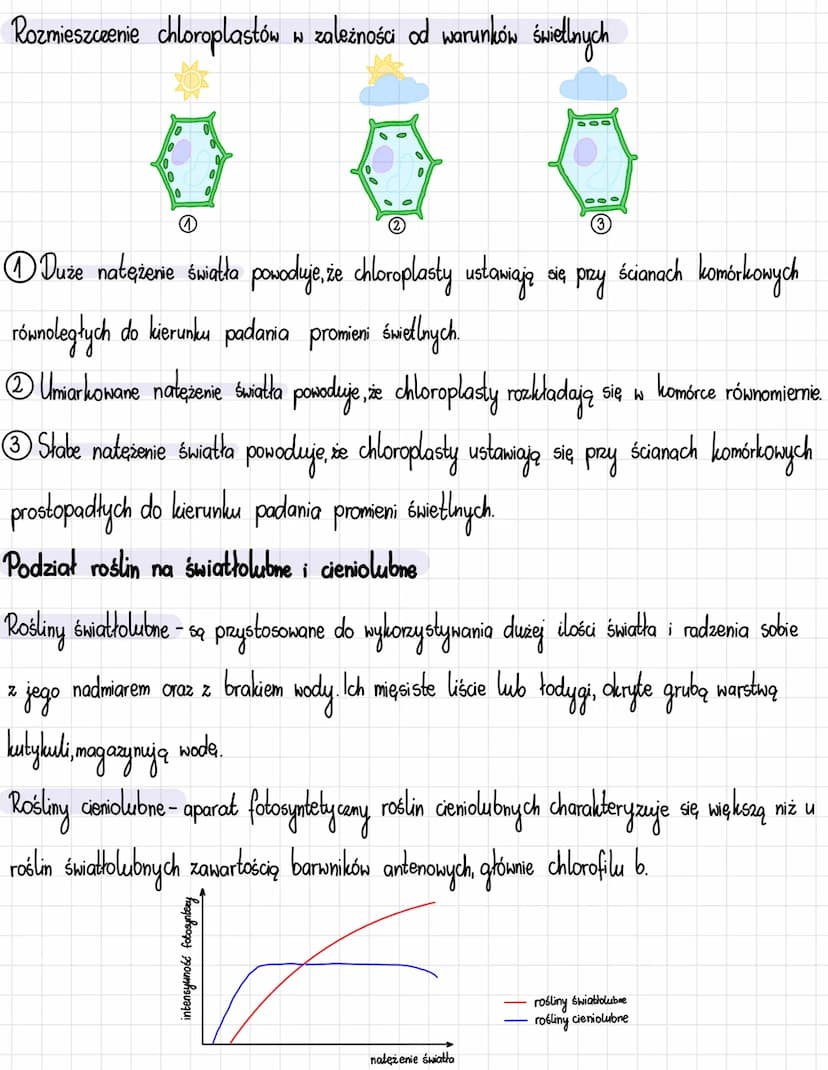 Rozmieszczenie chloroplastów w zależności od warunków świetlnych
①
②
③
① Duże natężenie światła powoduje, że chloroplasty ustawiają się przy ścianach komórkowych
równoległych do kierunku padania promieni świetlnych.
② Umiarkowane natężenie światła powoduje, że chloroplasty rozkładają się w komórce równomiernie.
③ Słabe natężenie światła powoduje, że chloroplasty ustawiają się przy ścianach komórkowych
prostopadłych do kierunku padania promieni świetlnych.
Podział roślin na światłolubne i cieniolubne
Rośliny światłolubne - są przystosowane do wykorzystywania dużej ilości światła i radzenia sobie
z jego nadmiarem oraz z brakiem wody. Ich mięsiste liście lub łodygi, okryte grubą warstwą
kutykuli, magazynują wodę.
Rośliny cieniolubne - aparat fotosyntetyczny roślin cieniolubnych charakteryzuje się większą niż u
roślin światłolubnych zawartością barwników antenowych, głównie chlorofilu b.
intensywność fotosyntezy
rośliny światłolubne
rośliny cieniolubne
natężenie światła